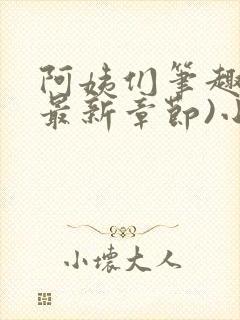 阿姨们笔趣
最新章节)小
小壞大人